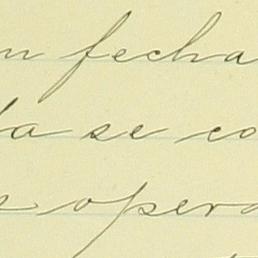 n fecha
da se co
s opera